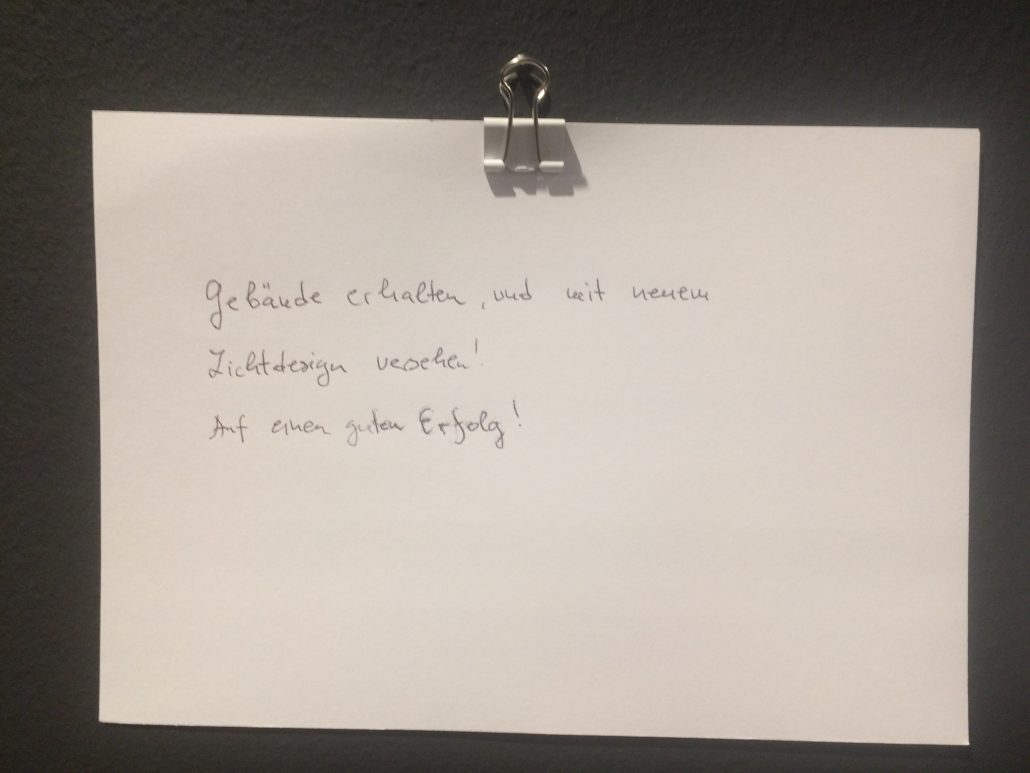 Gebäude erhalten, und mit neuem
Lichtdesign versehen!
Auf einen guten Erfolg!